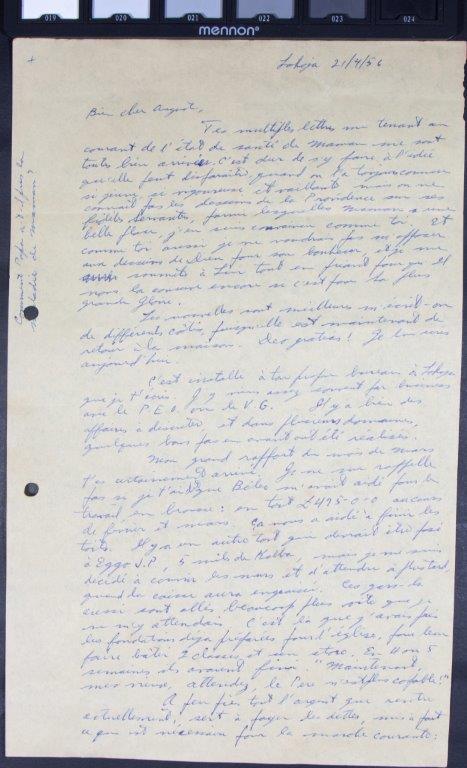 019 020 021 022 023 024
mennon
Lokoja 21/4/56
Bien cher August,
Tes multiples lettres me tenant au
courant de l'état de santé de maman me sont
toutes bien arrivées. C'est dur de s'y faire à l'idée
qu'elle peut disparaître, quand on l'a toujours connue
si jeune, si vigoureuse et vaillante mais on ne
connaît pas les desseins de la Providence sur ses
fidèles servantes, parmi lesquelles Maman a une
belle place, j'en suis convaincu comme toi. Et
comme toi aussi je ne voudrais pas m'opposer
aux desseins de Dieu pour son bonheur, et je me
soumets à Lui tout en priant pour qu'Il
nous la conserve encore si c'est pour Sa plus
grande gloire.
Les nouvelles sont meilleures m'écrit-on
de différents côtés, puisqu'elle est maintenant de
retour à la maison. Deo gratias! Je lui écris
aujourd'hui.
C'est installé à ton propre bureau à Lokoja
que je t'écris. J'y viens assez souvent par business
avec le P.E.O. ou le V.G. Il y a bien des
affaires à discuter et dans plusieurs domaines,
quelques bons pas en avant ont été réalisés.
Mon grand rapport du mois de mars
t'es certainement arrivé. Je ne me rappelle
pas si je t'ai dit que Béles m'avait aidé pour le
travail en brousse: en tout £495-0-0 au cours
de février et mars. Ça nous a aidé à finir les
toits. Il y a un autre toit qui devrait être posé
à Eggo J.P., 5 mils de Kabba, mais je me suis
décidé à couvrir les murs et d'attendre à plus tard,
quand la caisse aura engraissé. Ces gens-là
aussi sont allés beaucoup plus vite que je
ne m'y attendais. C'est là que j'avais pris
les fondations déjà préparées pour l'église, pour leur
faire bâtir 2 classes et un store. En 4 ou 5
semaines ils avaient fini. "Maintenant,
mes vieux, attendez, le Père n'est plus capable!"
À peu près tout l'argent qui rentre
actuellement, sert à payer les dettes, mis à part
ce qui est nécessaire pour la marche courante:
Comment Papa a-t-il pris la
maladie de maman?